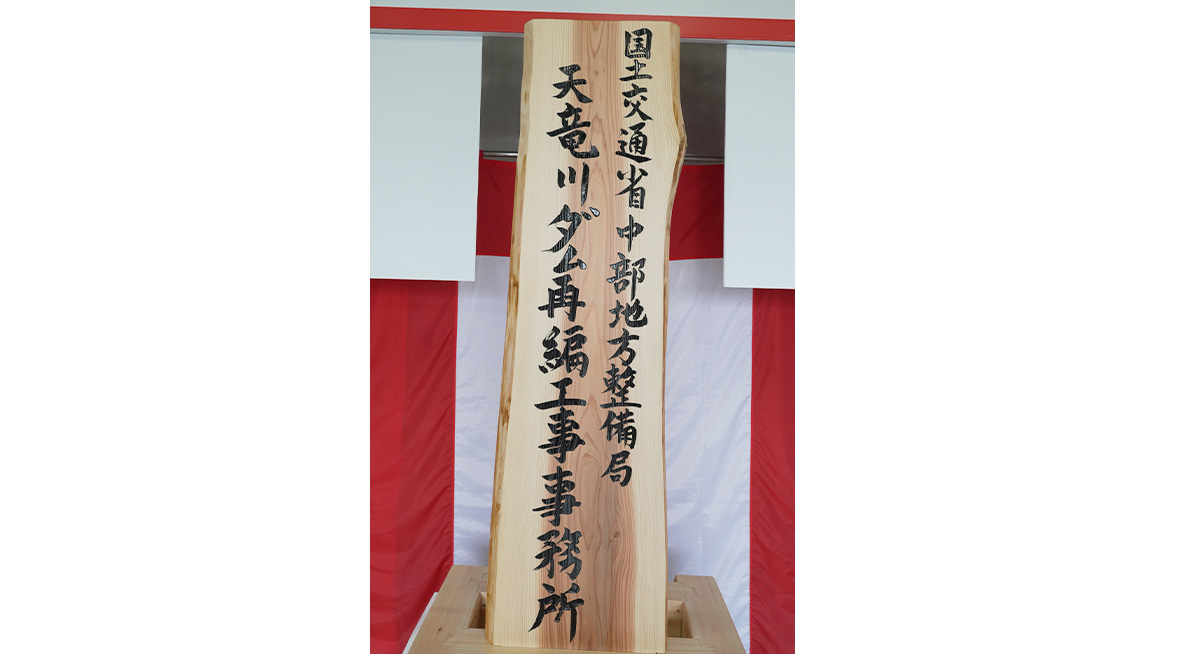 国土交通省中部地方整備局
天竜川ダム再編工事事務所